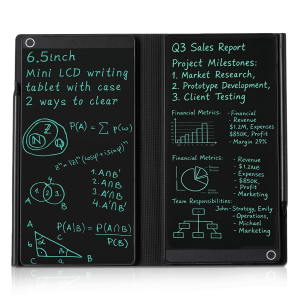 6.5inch
Mini LCD writing
tablet with case
2 ways to clear
N Z Q
P(A) = ∑ p(ω)
1 2 3
1. A∩B'
2. A∩B
3. A'∩B
4. A'∩B'
A
B
A
c
b
α
C
a
B
P(A|B) = P(A∩B)
P(B)
Q3 Sales Report
Project Milestones:
1. Market Research,
2. Prototype Development,
3. Client Testing
Financial Metrics:
- Financial
- Revenue
$1.2M, Expenses
$850K, Profit
- Margin 29%
Financial Metrics:
- Revenue
- $1.2M
- Expenses
- $850K,
- Profit
- Marketing
Team Responsibilities:
John-Strategy, Emily
- Operations,
- Michael
- Marketing